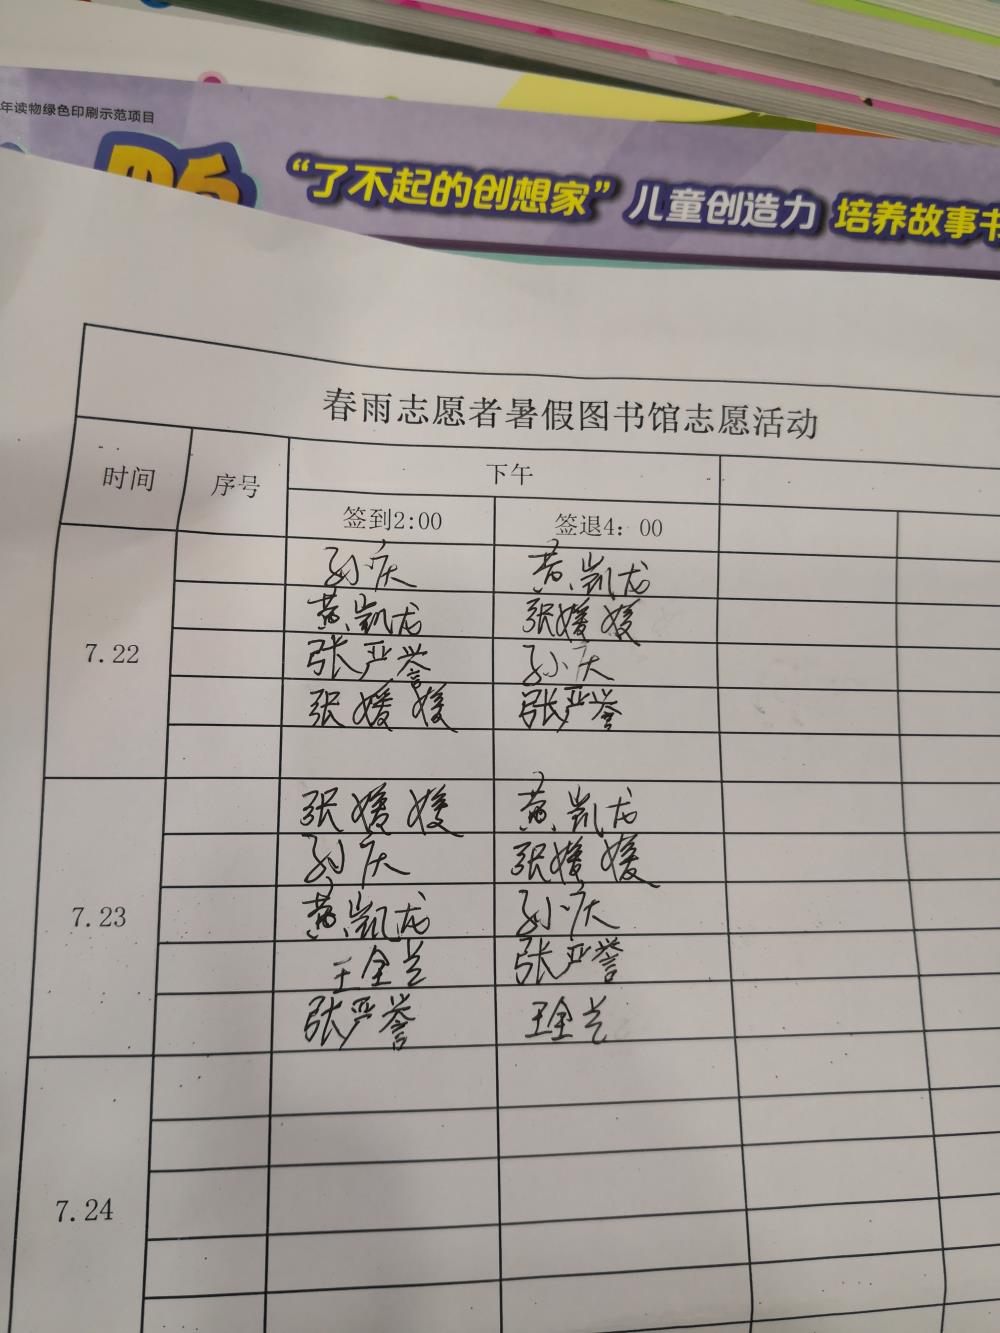 年读物绿色印刷示范项目
“了不起的创想家” 儿童创造力 培养故事书
春雨志愿者暑假图书馆志愿活动
时间 序号 下午
签到2:00 签退4：00
孙庆 黄凯龙
黄凯龙 张媛媛
7.22
张严誉 孙庆
张媛媛 张严誉
张媛媛 黄凯龙
孙庆 张媛媛
7.23
黄凯龙 孙庆
王全兰 张严誉
张严誉 王全兰
7.24